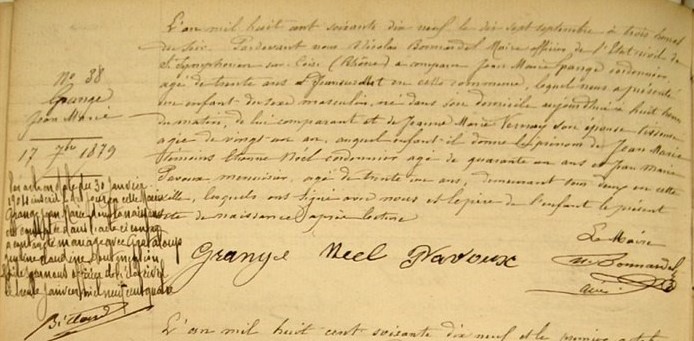 L'an mil huit cent soixante dix neuf le dix sept septembre à trois heures
du soir Pardevant nous Nicolas Bonnardel Maire officier de l'Etat civil de
St Symphorien sur Coise (Rhône) a comparu Jean Marie Grange cordonnier,
agé de trente ans en cette commune, lequel nous a présenté
un enfant du sexe masculin, né dans son domicile aujourd'hui à huit heures
du matin, de lui comparant et de Jeanne Marie Vernay son épouse
agée de vingt un an, auquel enfant il donne le prénom de Jean Marie
témoins Etienne Noël cordonnier agé de quarante un ans et Jean Marie
menuisier, agé de trente un ans, demeurant tous deux en cette
ville, lesquels ont signé avec nous et le père de l'enfant le présent
acte de naissance après lecture
No 88
Grange
Jean Marie
17 7bre 1879
Par acte en date du 30 Janvier
1904 inscrit le jour en cette Mairie
Grange Jean Marie dont la naissance
est constatée dans l'acte ci contre
a contracté mariage avec
le trente Janvier mil neuf cent quatre
Grange Noel
Le Maire
Bonnardel
L'an mil huit cent soixante dix neuf et le